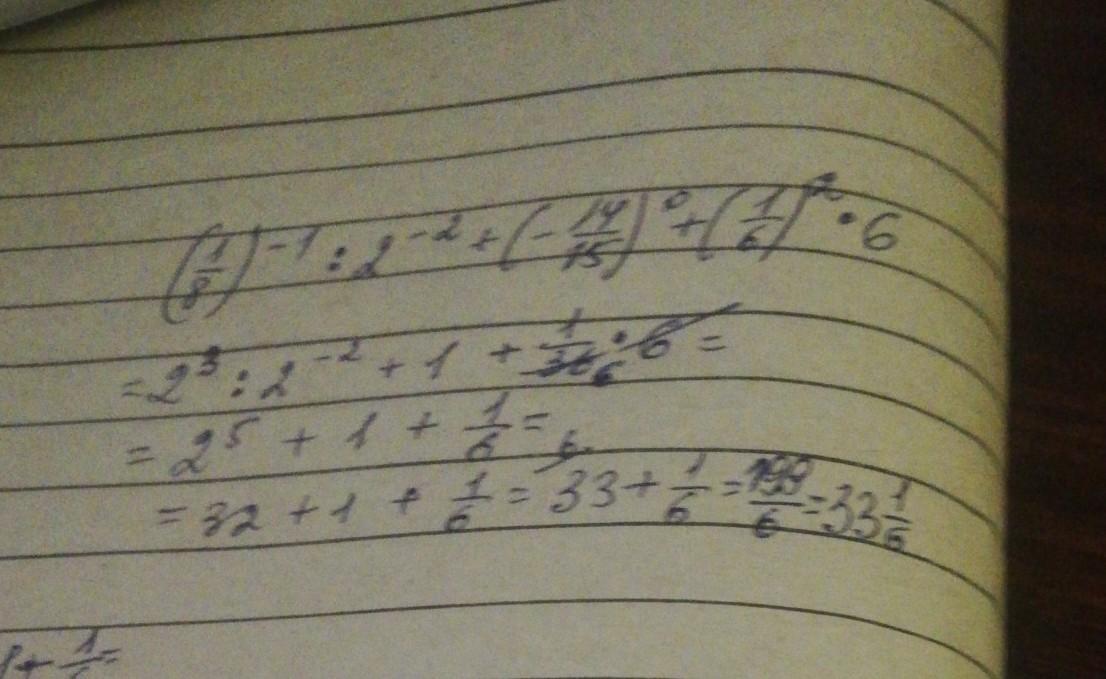 (1/8)^-1 : 2^-2 + (-14/15)^0 + (1/6)^2 · 6
= 2^3 : 2^-2 + 1 + 1/36 6 · 6 =
= 2^5 + 1 + 1/6 =
= 32 + 1 + 1/6 = 33 + 1/6 = 199/6 = 33 1/6